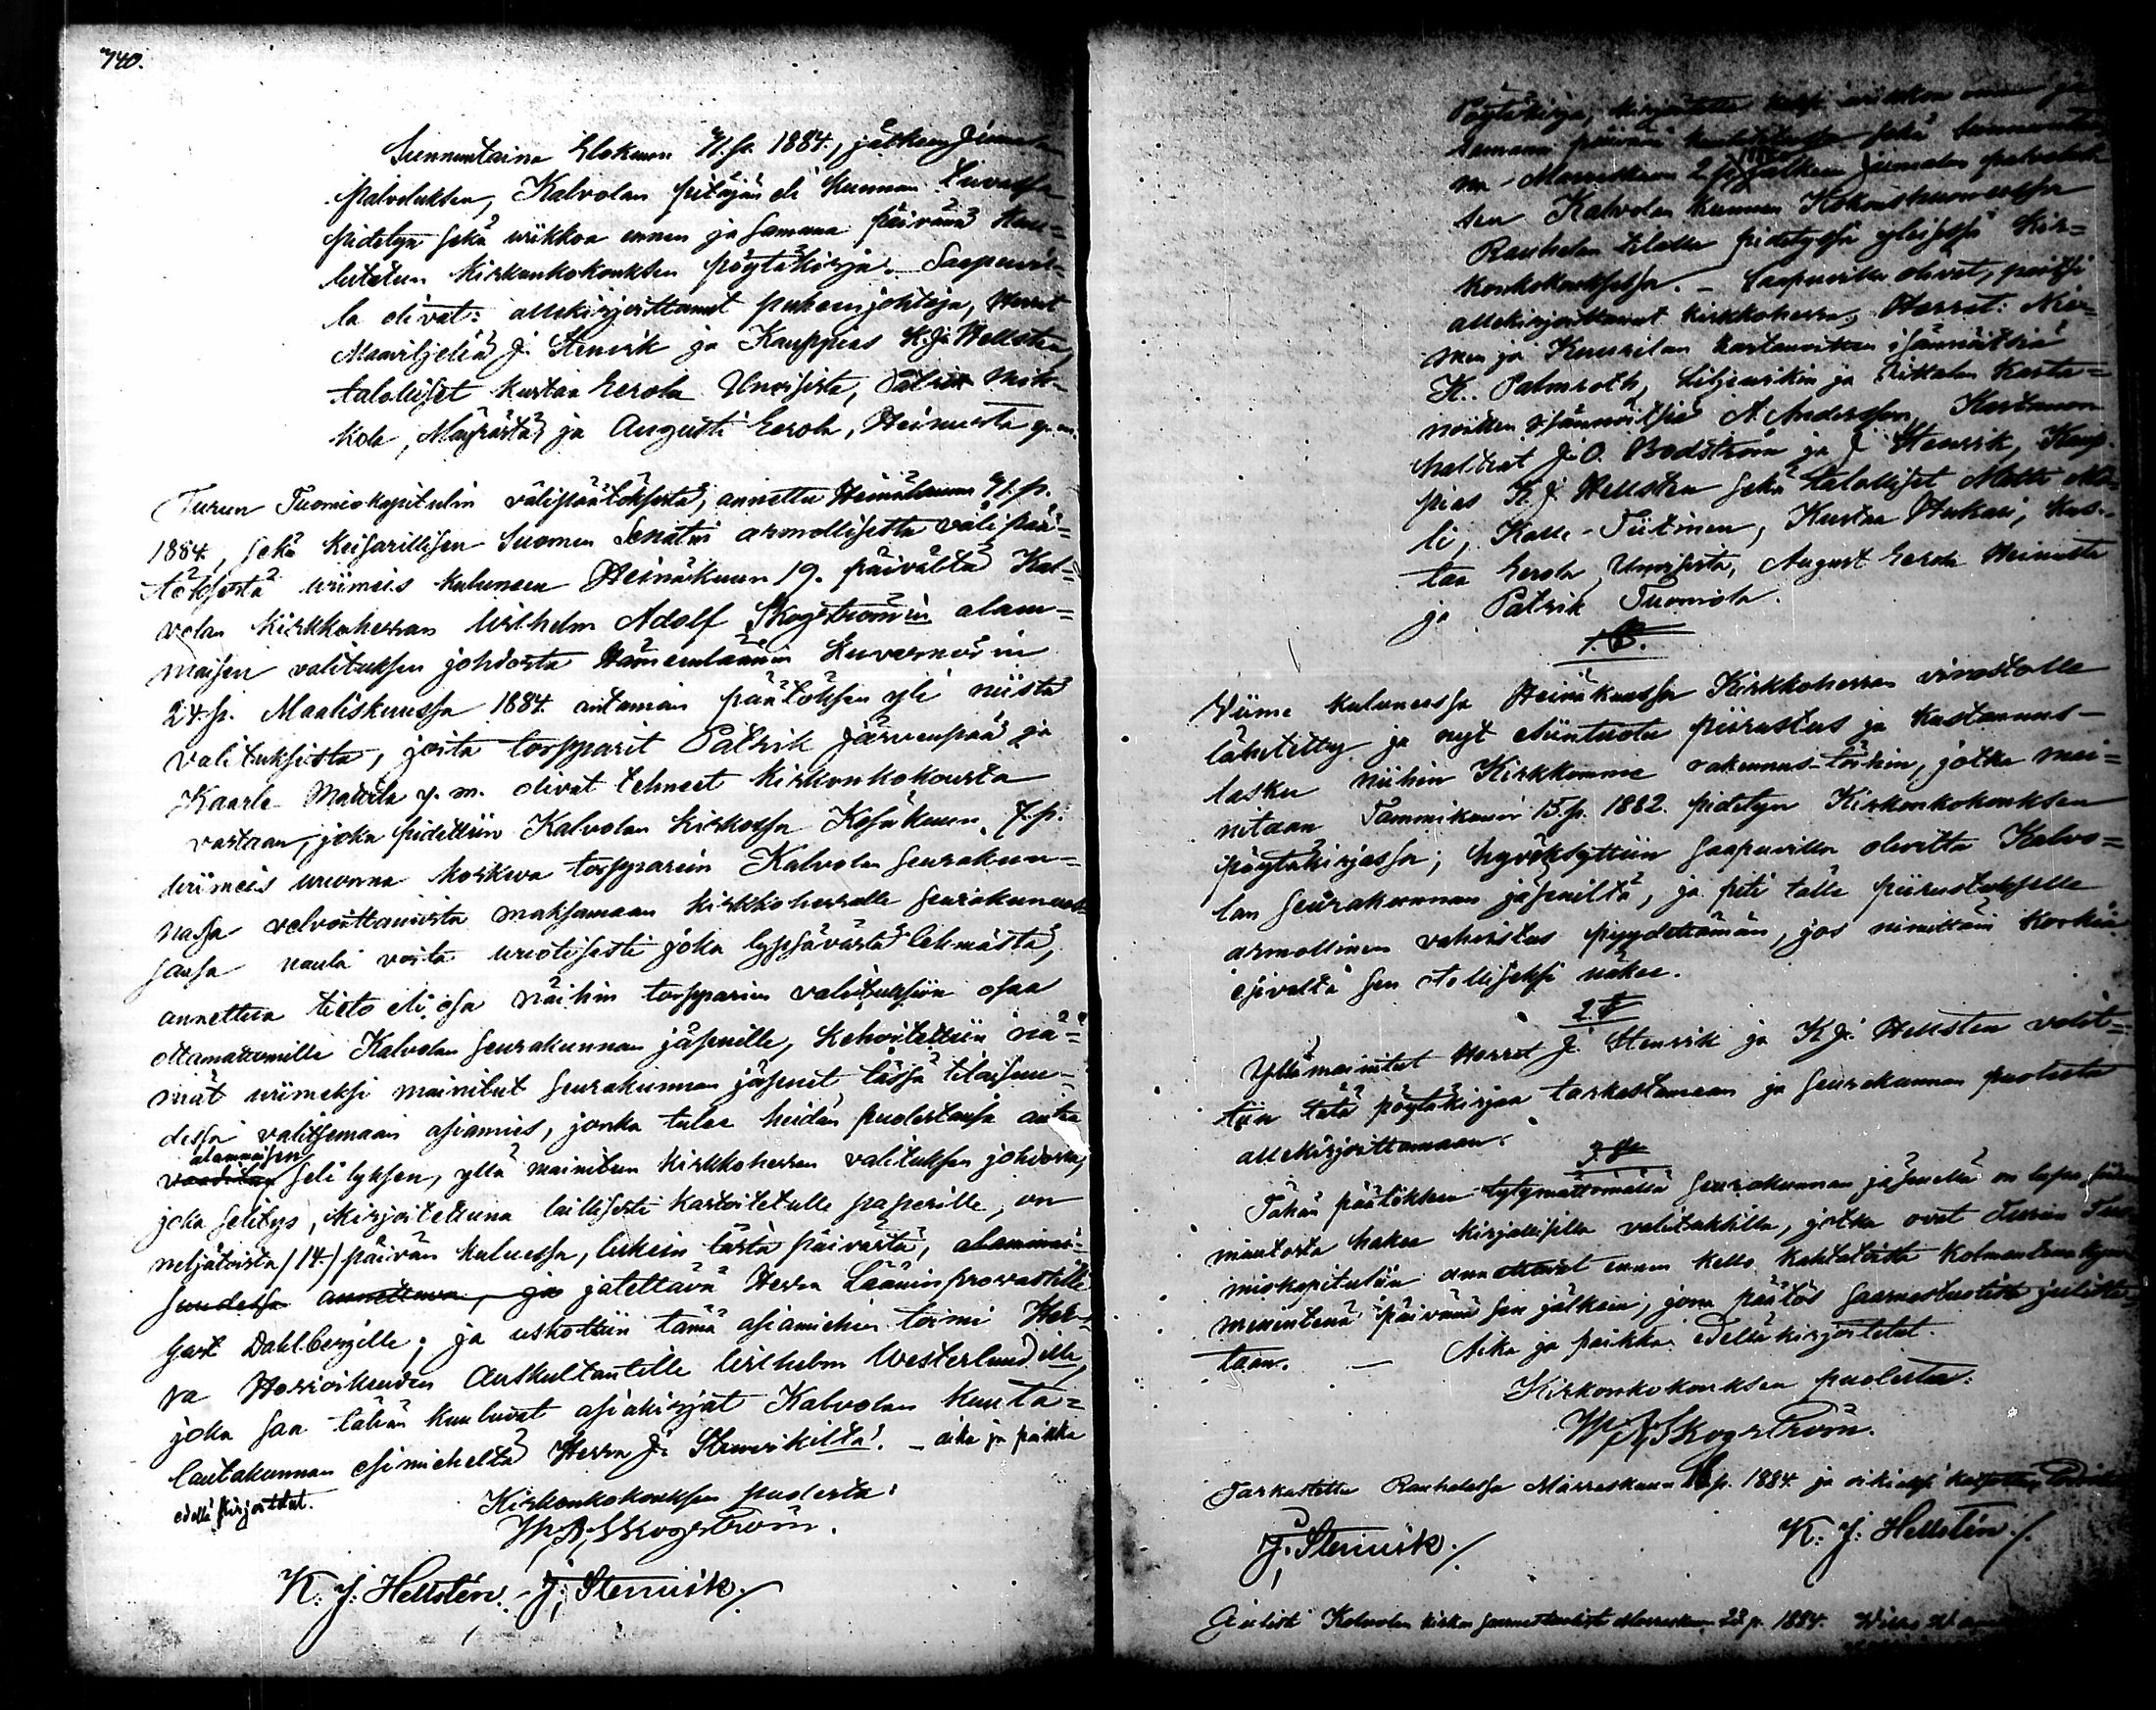 140.
Sunnuntaina Elokuun p. 1884, jälkeen Jumalan
palveluksen, Kalvolan pitäjän eli Kunnan tuvassa
pidetyn sekä wiikkoa ennen ja samana päivänä kuu=
lutetun kirkonkokouksen pöytäkirja. – Saapuvil=
la olivat: allekirjoittanut puheenjohtaja, Herrat
Maanviljeliä J. Stenvik ja Kauppias K. J. Hellsten,
talolliset Kustaa Eerola Unisista, Patrik
kola, ja Augusti Eerola, Heinusta y. m.
Turun Tuomiokapitulin välipäätöksestä, annettu Heinäkuun p.
1884, sekä Keisarillisen Suomen Senatin armollisesta välipää=
töksestä wiimeis kuluneen Heinäkuun 19. päivältä Kal=
volan Kirkkoherran Wilhelm Adolf Skogströmin alam=
maisen valituksen johdosta Hämeenläänin Kuvernöörin
24 p. Maaliskuussa 1884 antaman päätöksen yli niistä
valituksista, joita torpparit Patrik Järvenpää ja
Kaarle Mattila y. m. olivat tehneet kirkonkokousta
vastaan, joka pidettiin Kalvolan kirkossa Kesäkuun 7. p.
wiimeis wuonna koskeva torpparien Kalvolan seurakun=
nassa velvoittamista maksamaan kirkkoherralle seurakunnas=
sansa naula voita wuotisesti joka lypsävästä lehmästä,
annettua tieto eli osa näihin torpparien valituksiin osaa
ottamattomille Kalvolan seurakunnan jäsenille, kehoitettiin nä=
mät wiimeksi mainitut seurakunnan jäsenet tässä tilaisuu=
dessa valitsemaan asiamies, jonka tulee heidän puolestansa antaa
alammaisen
selityksen, yllä mainitun kirkkoherran valituksen johdosta,
joka selitys, kirjoitettuna laillisesti karttoitetulle paperille, on
neljätoista /14/ päivän kuluessa, lukein tästä päivästä, alammai=
suudessa annettava, ja jätettävä Herra Lääninprovastille
Dahlbergille; ja uskottiin tämä asiamiehen toimi
va Hovioikeuden Auskultantille Wilhelm Westerlundille,
joka saa tähän kuuluvat asiakirjat Kalvolan Kunta=
lautakunnan esimieheltä Herra J. Stenvikiltä. – aika ja paikka
edellä kirjoitetut.
Kirkonkokouksen puolesta:
W. A. Skogström.
K. J. Hellstén. J. Stenvik./.
Pöytäkirja, wiikkoa ennen ja
samana päivänä sekä sunnuntai=
na Marraskuun 2 p. jälkeen Jumalan palveluk=
sen Kalvolan kunnan Kokoushuoneessa
Rauhalan tilalla pidetyssä yleisessä Kir=
konkokouksessa. – Saapuvilla olivat, paitsi
allekirjoittanut kirkkoherra, Herrat: Nie=
men ja Kuurilan kartanoitten isännöitsiä
K. Palmroth, ja kartta=
noitten isännöitsiä A. Andersson, Kartanon
haltiat J. O. Bodström ja J. Stenvik, Kaup=
pias K. J. Hellsten sekä talolliset Matti
li, Kalle Tiitinen, Kustaa Kus=
taa Eerola Unisista, August Eerola Heinusta
ja Patrik Tuomola.
1. §.
Viime kuluneessa Heinäkuussa Kirkkoherran virastolle
lähetetty ja nyt esiintuotu piirustus ja kustannus=
lasku niihin Kirkkomme rakennus-töihin, jotka mai=
nitaan Tammikuun 15. p. 1882 pidetyn Kirkonkokouksen
pöytäkirjassa; hyväksyttiin saapuvilla olevilta Kalvo=
lan seurakunnan jäseniltä, ja piti tälle piirustukselle
armollinen vahvistus pyydettämän, jos nimittäin Korkea
esivalta sen otolliseksi näkee.
2. §
Yllämainitut Herrat J. Stenvik ja K. J. Hellsten valit=
tiin tätä pöytäkirjaa tarkastamaan ja seurakunnan puolesta
allekirjoittamaan.
3. §
Tähän päätökseen tytymättömällä seurakunnan jäsenellä on lupa
muutosta hakea kirjallisilla valituksilla, jotka ovat Turun Tuo=
miokapituliin annettavat ennen kello kahtatoista kolmantena kym=
menentenä päivänä sen jälkeen, jona päätös saarnastuolista juliste=
taan. – Aika ja paikka edelläkirjoitetut.
Kirkonkokouksen puolesta:
W. A. Skogström.
Tarkastettu Rauhalassa Marraskuun p. 1884 ja oikiaksi
J. Stenvik./. K. J. Hellstén./.
Kalvolan kirkon saarnastuolista Marraskuun 23 p. 1884.